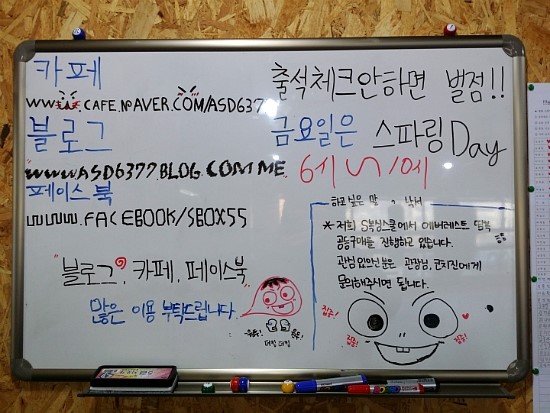 카페
www.CAFE.NAVER.COM/ASD637
블로그
www.ASD6377.BLOG.COM.ME
페이스북
www.FACEBOOK/SBOX55
"블로그, 카페, 페이스북"
많은 이용 부탁드립니다.
출석체크안하면 벌점!!
금요일은 스파링Day
* 저희 S복싱스쿨에서 에버레스트 덤북
공동구매를 진행하고 있습니다.
관심있으신분은 관장님, 코치진에게
문의해주시면 됩니다.
집중!
집중!
집중!